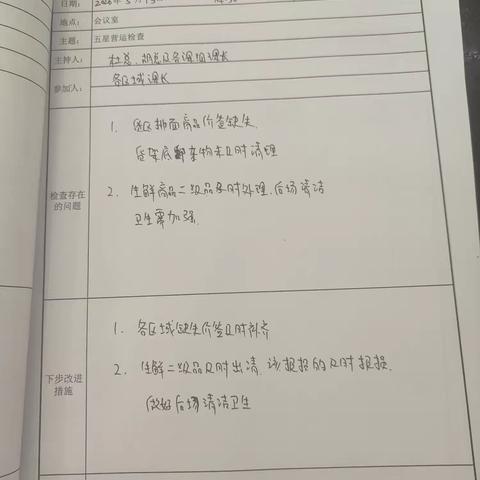 日期：
地点： 会议室
主题： 五星营运检查
主持人： 杜总、胡总及各课组课长
参加人： 各区域课长
检查存在的问题
1. 各区排面商品价签缺失
货架底部杂物未及时清理
2. 生鲜商品二级品及时处理.后场清洁
卫生需加强.
下步改进措施
1. 各区域缺失价签及时补齐
2. 生鲜二级品及时出清.该报损的及时报损.
做好后场清洁卫生